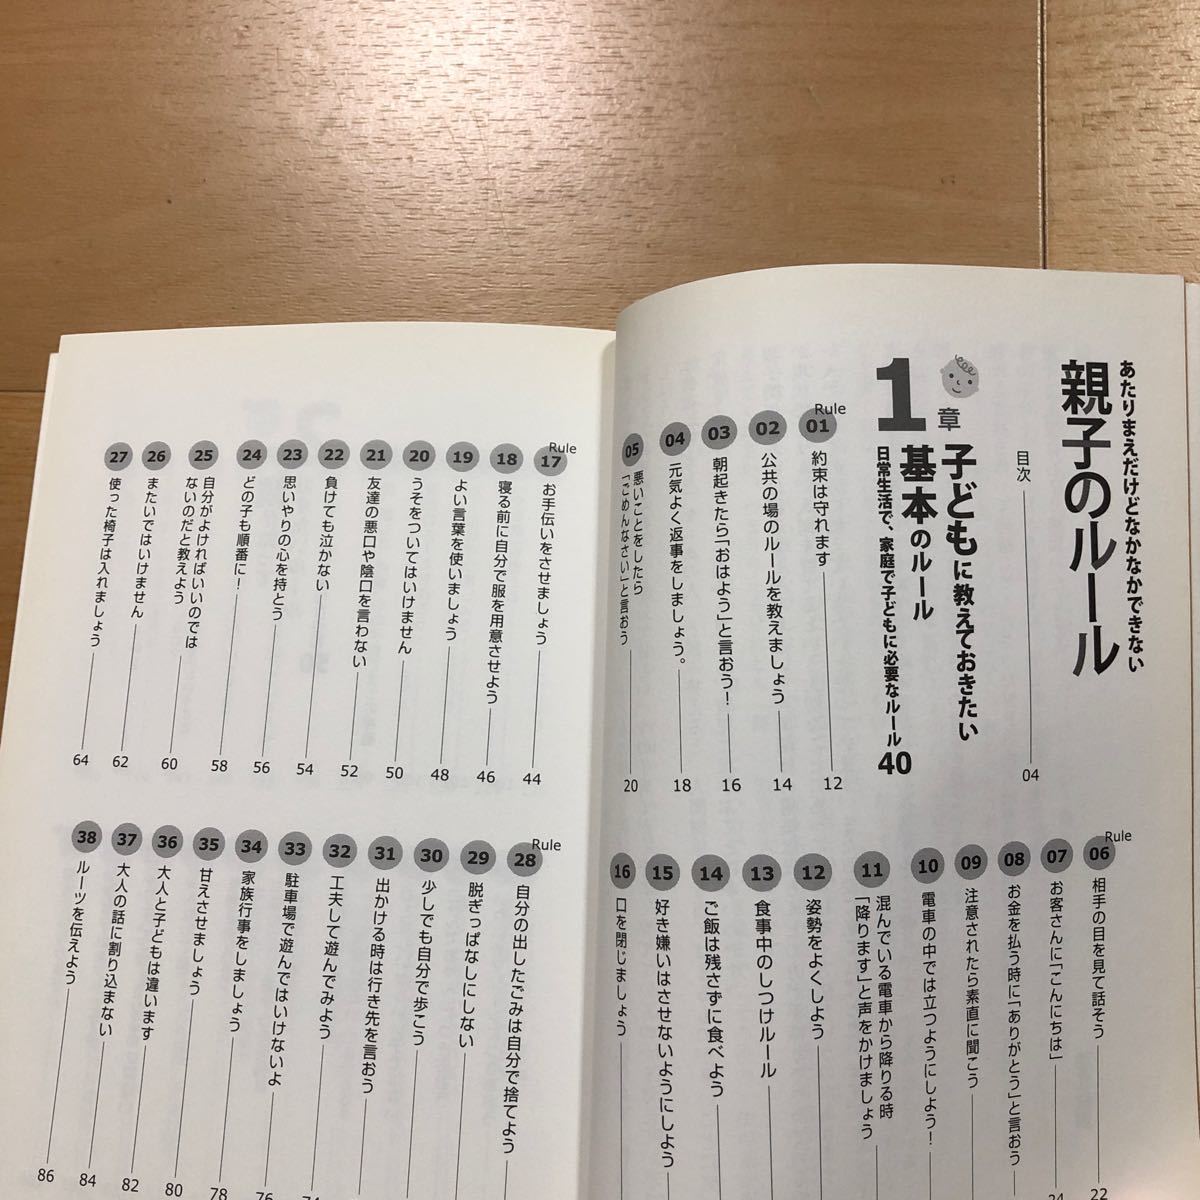 あたりまえだけどなかなかできない
親子のルール
目次
04
1章
子どもに教えておきたい
基本のルール
日常生活で、家庭で子どもに必要なルール40
Rule
01 約束は守れます 12
02 公共の場のルールを教えましょう 14
03 朝起きたら「おはよう」と言おう! 16
04 元気よく返事をしましょう。 18
05 悪いことをしたら
「ごめんなさい」と言おう 20
Rule
06 相手の目を見て話そう 22
07 お客さんに「こんにちは」 24
08 お金を払う時に「ありがとう」と言おう
09 注意されたら素直に聞こう
10 電車の中では立つようにしよう!
11 混んでいる電車から降りる時
「降ります」と声をかけましょう
12 姿勢をよくしよう
13 食事中のしつけルール
14 ご飯は残さずに食べよう
15 好き嫌いはさせないようにしよう
16 口を閉じましょう
Rule
17 お手伝いをさせましょう 44
18 寝る前に自分で服を用意させよう 46
19 よい言葉を使いましょう 48
20 うそをついてはいけません 50
21 友達の悪口や陰口を言わない 52
22 負けても泣かない 54
23 思いやりの心を持とう 56
24 どの子も順番に! 58
25 自分がよければいいのでは
ないのだと教えよう 60
26 またいではいけません 62
27 使った椅子は入れましょう 64
Rule
28 自分の出したごみは自分で捨てよう
29 脱ぎっぱなしにしない
30 少しでも自分で歩こう
31 出かける時は行き先を言おう
32 工夫して遊んでみよう 74
33 駐車場で遊んではいけないよ 76
34 家族行事をしましょう 78
35 甘えさせましょう 80
36 大人と子どもは違います 82
37 大人の話に割り込まない 84
38 ルーツを伝えよう 86